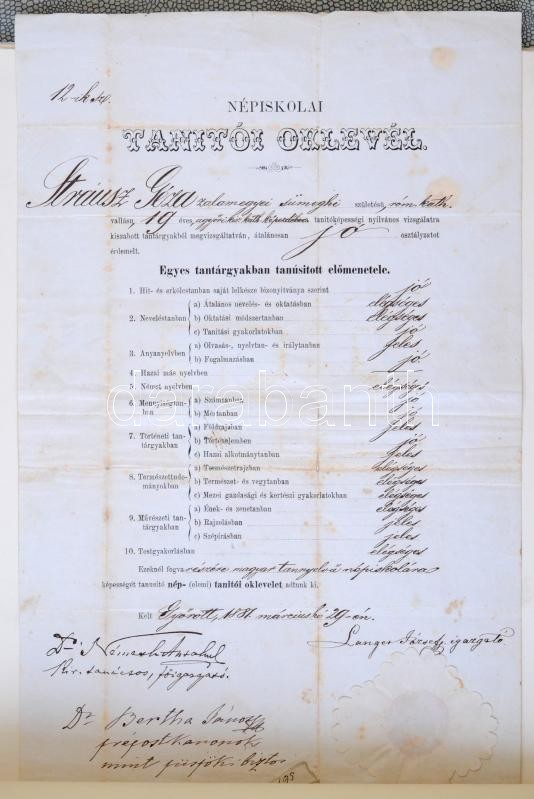 12-ik sz.
NÉPISKOLAI
TANITÓI OKLEVÉL.
Strausz Géza zalamegyei sümeghi születésü, róm. kath.
vallásu, 19 éves, a győri kir. kath. képezdében tanitóképességi nyilvános vizsgálatra
kiszabott tantárgyakból megvizsgáltatván, átalánosan jó osztályzatot
érdemelt.
Egyes tantárgyakban tanúsitott előmenetele.
1. Hit- és erkölcstanban saját lelkésze bizonyitványa szerint jó
2. Neveléstanban
a) Átalános nevelés- és oktatásban elégséges
b) Oktatási módszertanban elégséges
c) Tanitási gyakorlatokban jó
3. Anyanyelvben
a) Olvasás-, nyelvtan- és irálytanban jeles
b) Fogalmazásban jó
4. Hazai más nyelvben —
5. Német nyelvben elégséges
6. Mennyiségtanban
a) Számtanban jó
b) Mértanban jó
7. Történeti tantárgyakban
a) Földrajzban jeles
b) Történelemben jó
c) Hazai alkotmánytanban jeles
8. Természettudományokban
a) Természetrajzban elégséges
b) Természet- és vegytanban elégséges
c) Mezei gazdasági és kertészi gyakorlatokban elégséges
9. Művészeti tantárgyakban
a) Ének- és zenetanban elégséges
b) Rajzolásban jeles
c) Szépirásban jeles
10. Testgyakorlásban elégséges
Ezeknél fogva részére magyar tannyelvű népiskolára
képességét tanusitó nép- (elemi) tanitói oklevelet adtunk ki.
Kelt Győrött, 1881. márcziushó 29-én.
Langer József, igazgató
Dr. Németh Antal
Kir. tanácsos, főigazgató.
Dr Bertha János
prépost kanonok
mint püspöki biztos
darabanth